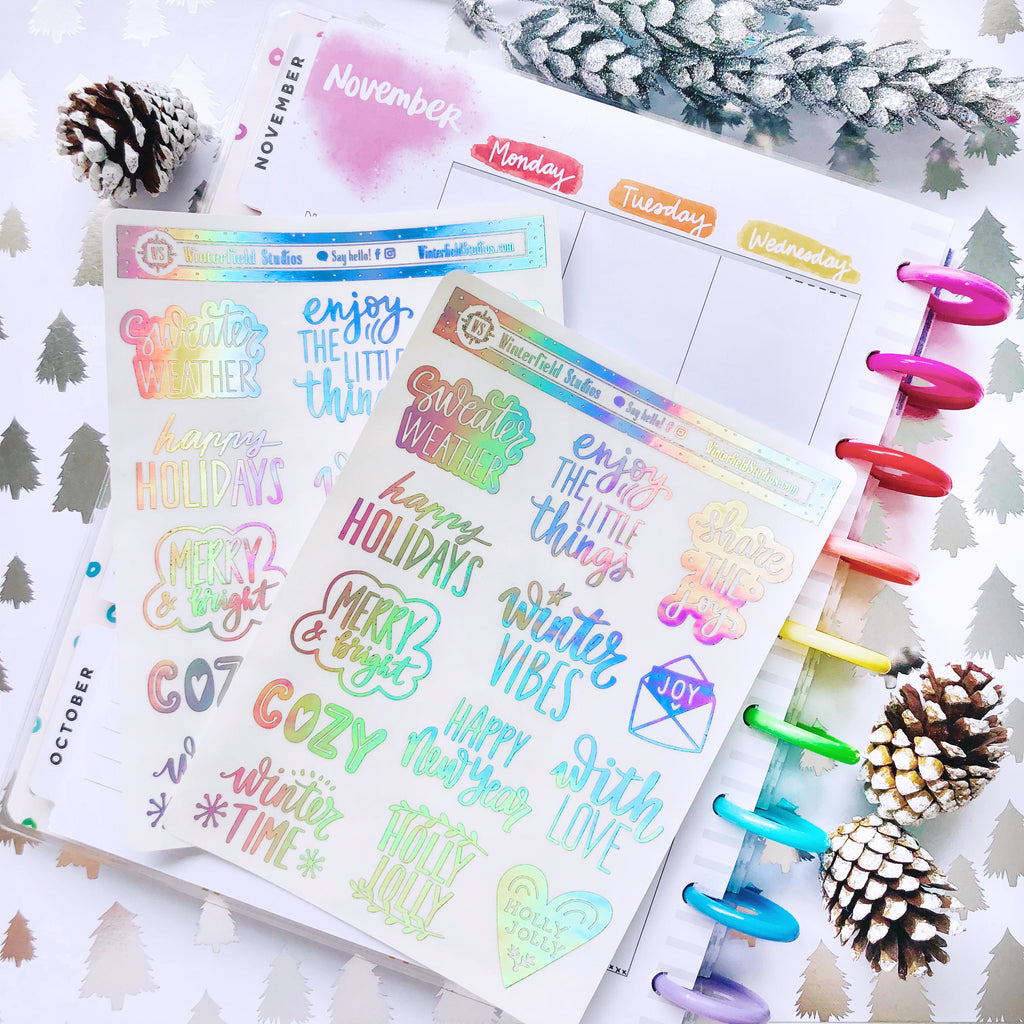 NOVEMBER
November
Monday
Tuesday
Wednesday
OCTOBER
VS
Winterfield Studios
Say hello!
WinterfieldStudios.com
Sweater
WEATHER
enjoy
THE LITTLE
things
happy
HOLIDAYS
MERRY
& bright
COZ
VS
Winterfield Studios
Say hello!
WinterfieldStudios.com
Sweater
WEATHER
enjoy
THE LITTLE
things
share
THE
joy
happy
HOLIDAYS
winter
VIBES
MERRY
& bright
JOY
COZY
HAPPY
New year
with
LOVE
winter
TIME
HOLLY
JOLLY
HOLLY
JOLLY